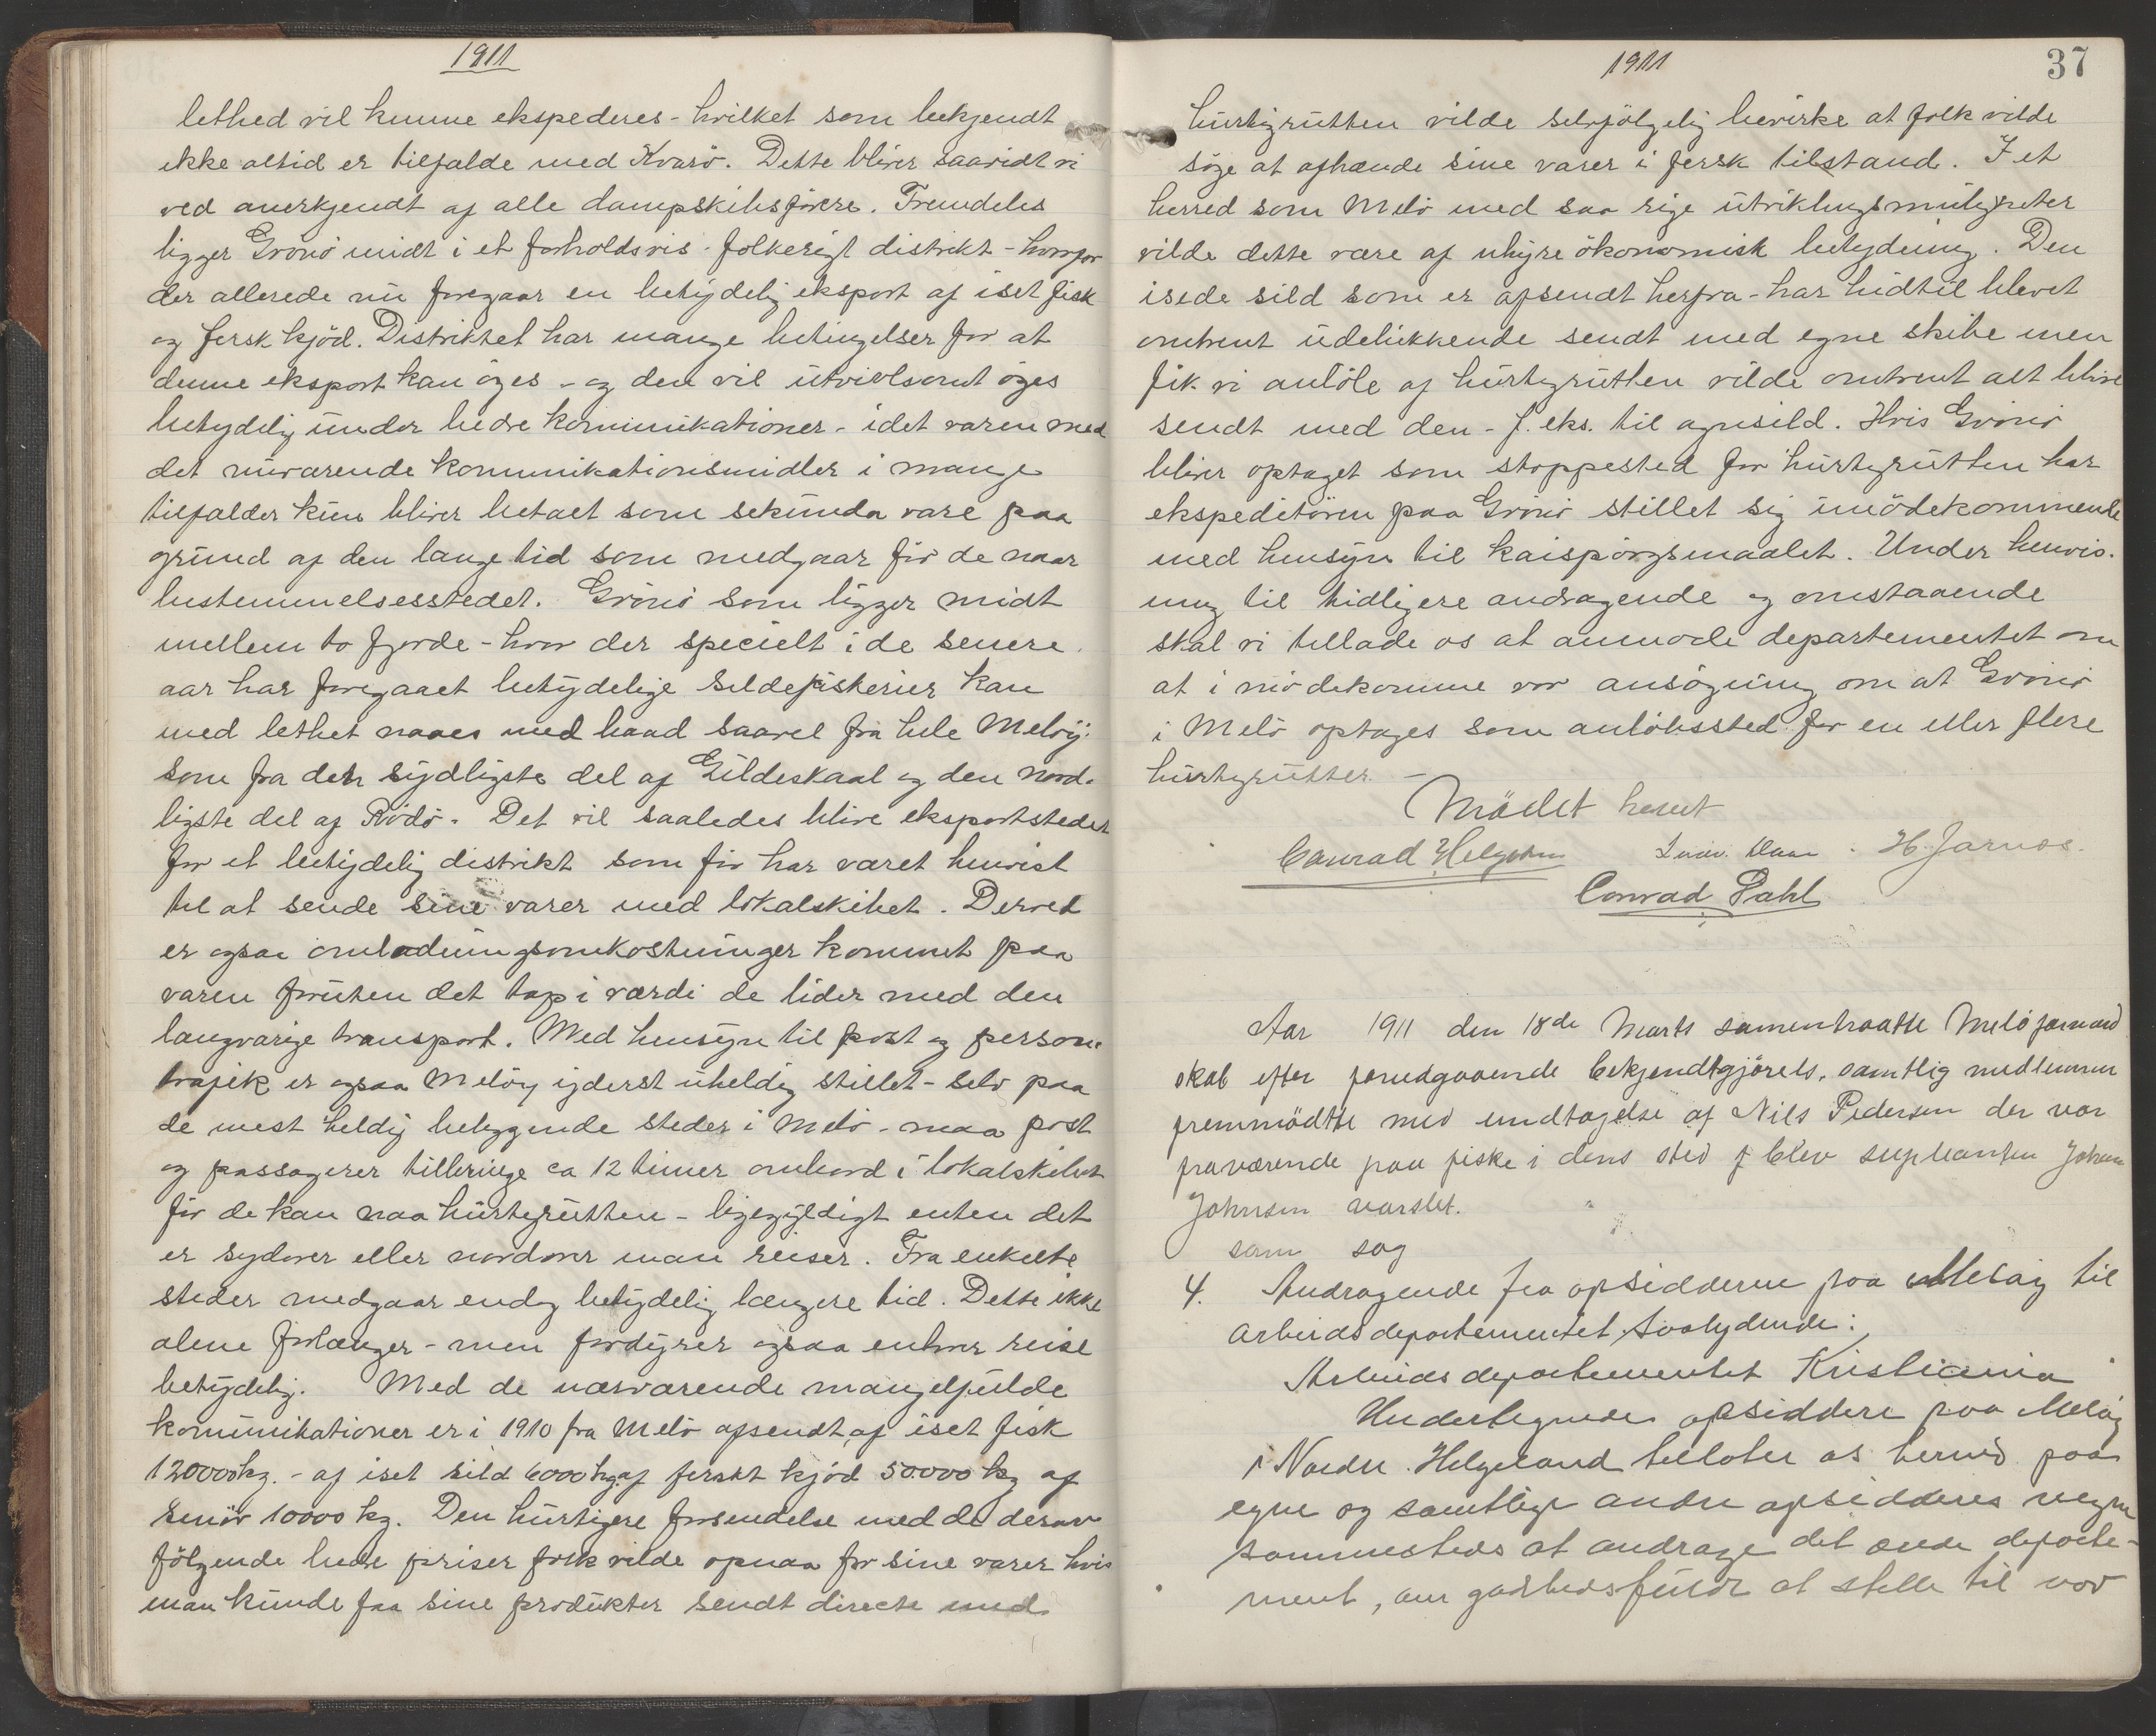 1911
lethed vil kunne ekspederes - hvilket som bekjendt
ikke altid er tilfalde med Kvarö. Dette bliver saavidt vi
ved anerkjendt af alle dampskibsförere. Fremdeles
ligger Grönö midt i et forholdsvis folkerigt distrikt - hvorfor
der allerede nu foregaar en betydelig eksport af iset fisk
og fersk kjöd. Distriktet har mange betingelser for at
denne eksport kan öges - og den vil utvivlsomt öges
betydelig under bedre kommunikationer - idet varen med
det nuvarende kommunikationsmidler i mange
tilfalder kun bliver betalt som sekunda vare paa
grund af den lange tid som medgaar för de naar
bestemmelsesstedet. Grönö som ligger midt
mellem to fjorde - hvor der specielt i de senere
aar har foregaaet betydelige sildefiskerier kan
med lethet naaes med baad saavel fra hele Melöy
som fra den sydligste del af Gildeskaal og den nord-
ligste del af Rödö. Det vil saaledes blive eksportstedet
for et betydelig distrikt som för har været henvist
til at sende sine varer med lokalskibet. Derved
er ogsaa omladningsomkostninger kommet paa
varen foruten det tap i værdi de lider med den
langvarige transport. Med hensyn til post og person-
trafik er ogsaa Melöy yderst uheldig stillet - selv paa
de mest heldig beliggende steder i Melö - maa post
og passagerer tilbringe ca 12 timer ombord i lokalskibet
för de kan naa hurtigrutten - ligegyldigt enten det
er sydover eller nordover man reiser. Fra enkelte
steder medgaar endog betydelig længere tid. Dette ikke
alene forlænger - men fordyrer ogsaa enhver reise
betydelig. Med de nærværende mangelfulde
kommunikationer er i 1910 fra Melö afsendt af iset fisk
120000 kg. - af iset sild 6000 kg. af ferskt kjöd 50000 kg af
smör 10000 kg. Den hurtigere forsendelse med de derav
fölgende bedre priser folk vilde opnaa for sine varer hvis
man kunde faa sine produkter sendt directe med
1911
37
hurtigrutten vilde selvfölgelig bevirke at folk vilde
söge at afhænde sine varer i fersk tilstand. I et
herred som Melö med saa rige utviklingsmuligheter
vilde dette være af uhyre ökonomisk betydning. Den
isede sild som er afsendt herfra - har hidtil blevet
omtrent udelukkende sendt med egne skibe men
fik vi anlöb af hurtigrutten vilde omtrent alt blive
sendt med den - f. eks. til agnsild. Hvis Grönö
bliver optaget som stoppested for hurtigrutten har
ekspeditören paa Grönö stillet sig imödekommende
med hensyn til kaispörgsmaalet. Under henvis-
ning til tidligere andragende og omstaaende
skal vi tillade os at anmode departementet om
at imödekomme vor ansögning om at Grönö
i Melö optages som anlöbssted for en eller flere
hurtigrutter. -
Mödet hevet
Conrad Helgesen H. Jarnæs.
Conrad Dahl
Aar 1911 den 18de Marts samentraatte Melö formand
skab efter forudgaaende bekjendtgjörels, samtlig medlemmer
fremmödtte med undtagelse af Nils Pedersen der var
fraværende paa fiske i dens sted blev supleanten Johan
Johnsen varslet.
som sag
4. Andragende fra opsidderne paa Melöy til
Arbeidsdepartementet saalydende:
Arbeidsdepartementet Kristiania
Undertegnede opsiddere paa Melöy
i Nordre Helgeland tillater os herved paa
egne og samtlige andre opsidderes vegne
sammesteds at andrage det ærede departe-
ment, om godhedsfuldt at stille til vor